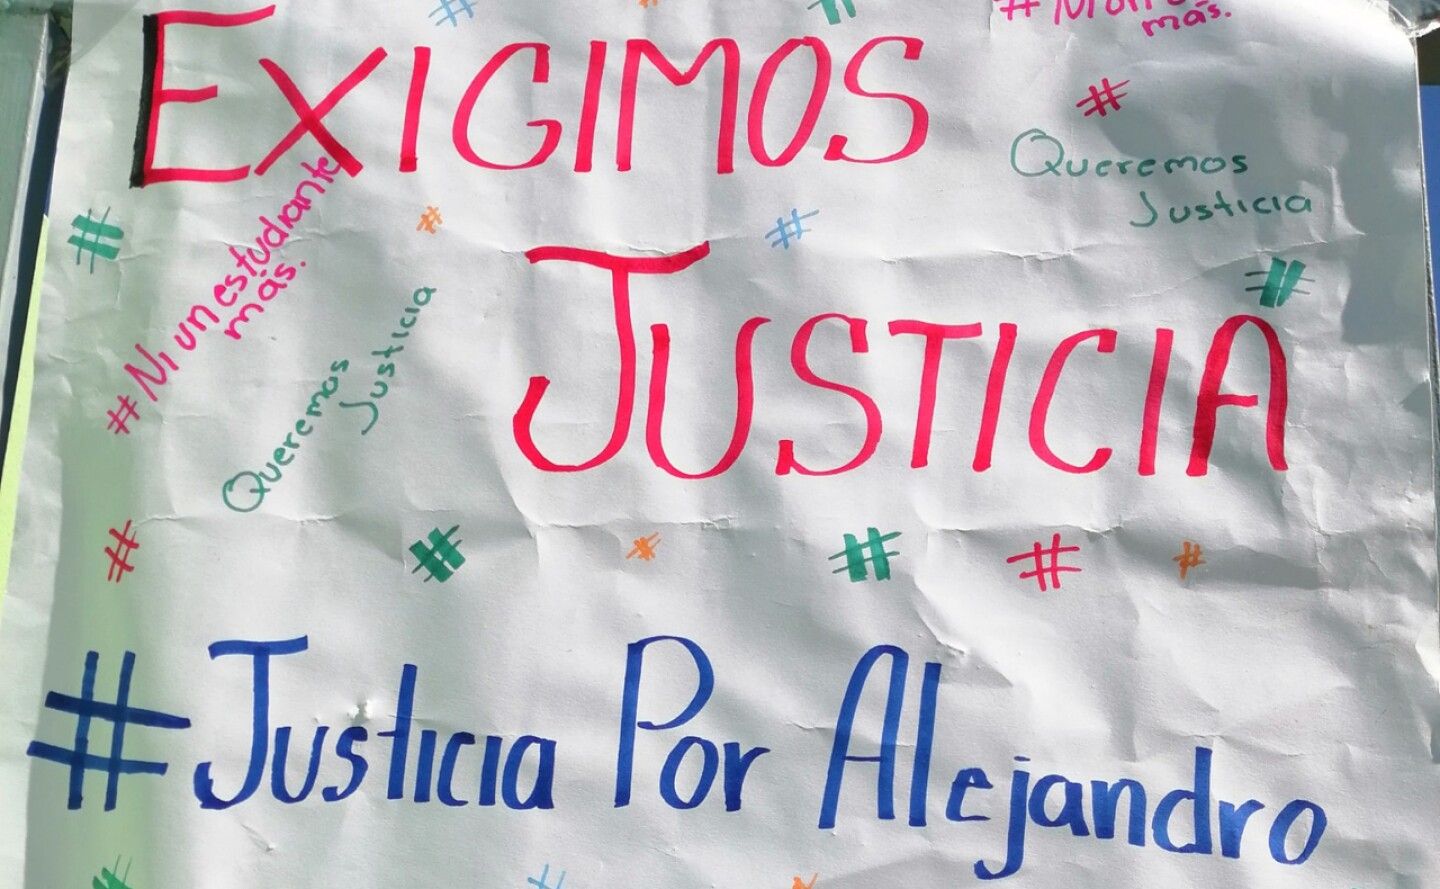 EXIGIMOS
#
más.
#
Queremos
Justicia
#
#
#
#
JUSTICIA
#Ni un estudiante
más.
Queremos
Justicia
#
#
#
#
#
#
#Justicia Por Alejandro